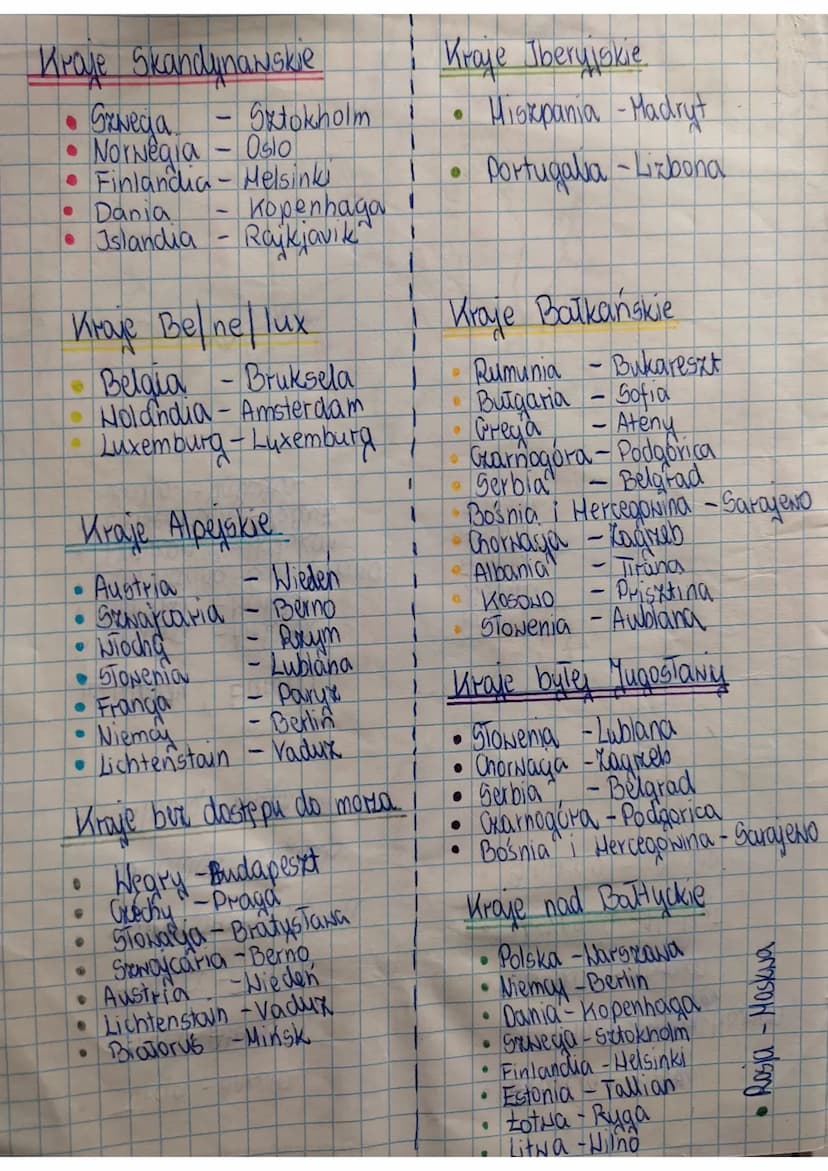 Kraje Skandynawskie
• Szwecja – Sztokholm
• Norwegia – Oslo
• Finlandia – Helsinki
• Dania – Kopenhaga
• Islandia – Rajkjavik
Kraje Be/ne/lux
• Belgia – Bruksela
• Holandia – Amsterdam
• Luxemburg – Luxemburg
Kraje Alpejskie
• Austria – Wiedeń
• Szwajcaria – Berno
• Włochy – Rzym
• Słowenia – Lublana
• Francja – Paryż
• Niemcy – Berlin
• Lichtenstain – Vaduz
Kraje bez dostępu do morza
• Węgry – Budapeszt
• Czechy – Praga
• Słowacja – Bratysława
• Szwajcaria – Berno
• Austria – Wiedeń
• Lichtenstain – Vaduz
• Białoruś – Mińsk
Kraje Iberyjskie
• Hiszpania – Madryt
• Portugalia – Lizbona
Kraje Bałkańskie
• Rumunia – Bukareszt
• Bułgaria – Sofia
• Grecja – Ateny
• Czarnogóra – Podgórica
• Serbia – Belgrad
• Bośnia i Hercegowina – Sarajewo
• Chorwacja – Zagrzeb
• Albania – Tirana
• Kosowo – Prisztina
• Słowenia – Lublana
Kraje byłej Jugosławii
• Słowenia – Lublana
• Chorwacja – Zagrzeb
• Serbia – Belgrad
• Czarnogóra – Podgorica
• Bośnia i Hercegowina – Sarajewo
Kraje nad Bałtyckie
• Polska – Warszawa
• Niemcy – Berlin
• Dania – Kopenhaga
• Szwecja – Sztokholm
• Finlandia – Helsinki
• Estonia – Tallian
• Łotwa – Ryga
• Litwa – Wilno
• Rosja – Moskwa